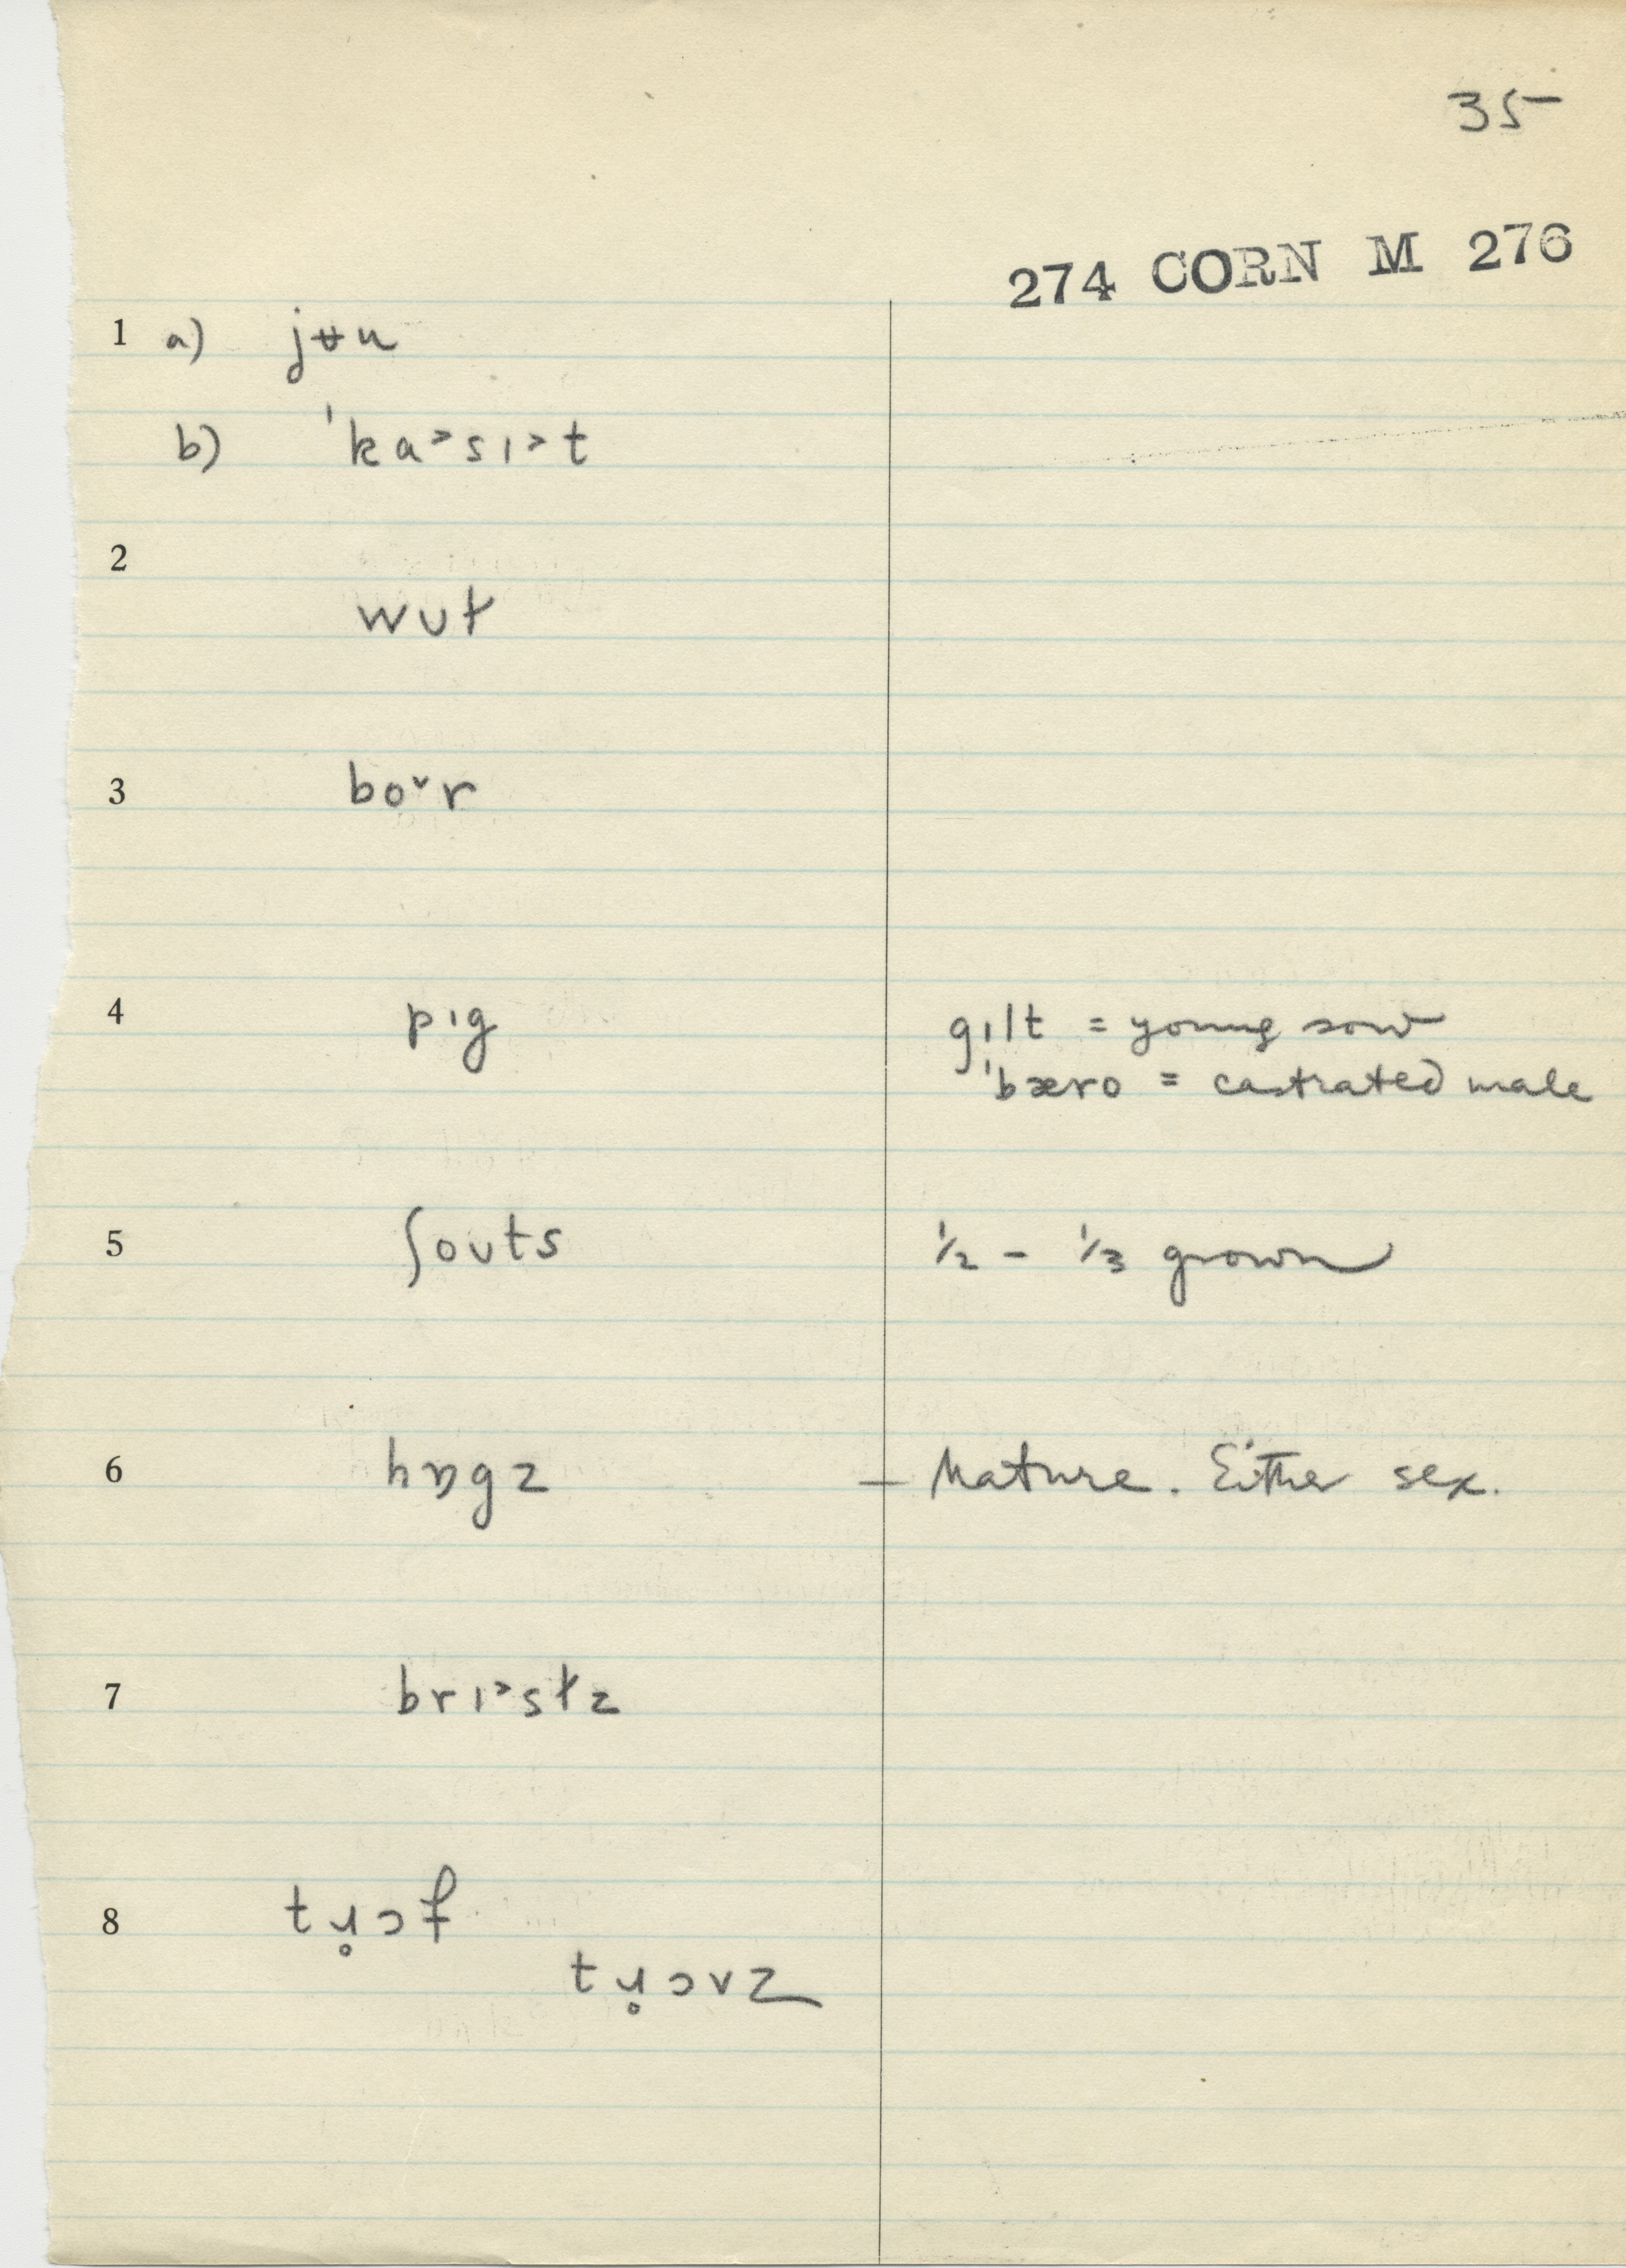 35
274 CORN M 276
1 a) jʉu
b) ˈka˃sɪ˃t
2
wʊɫ
3 bo˅r
4 pɪg gɪlt = young sow
ˈbæro = castrated male
5 ʃoʊts ½ - ⅓ grown
6 hɒgz — Mature. Either sex.
7 brɪ˃sɫz
8